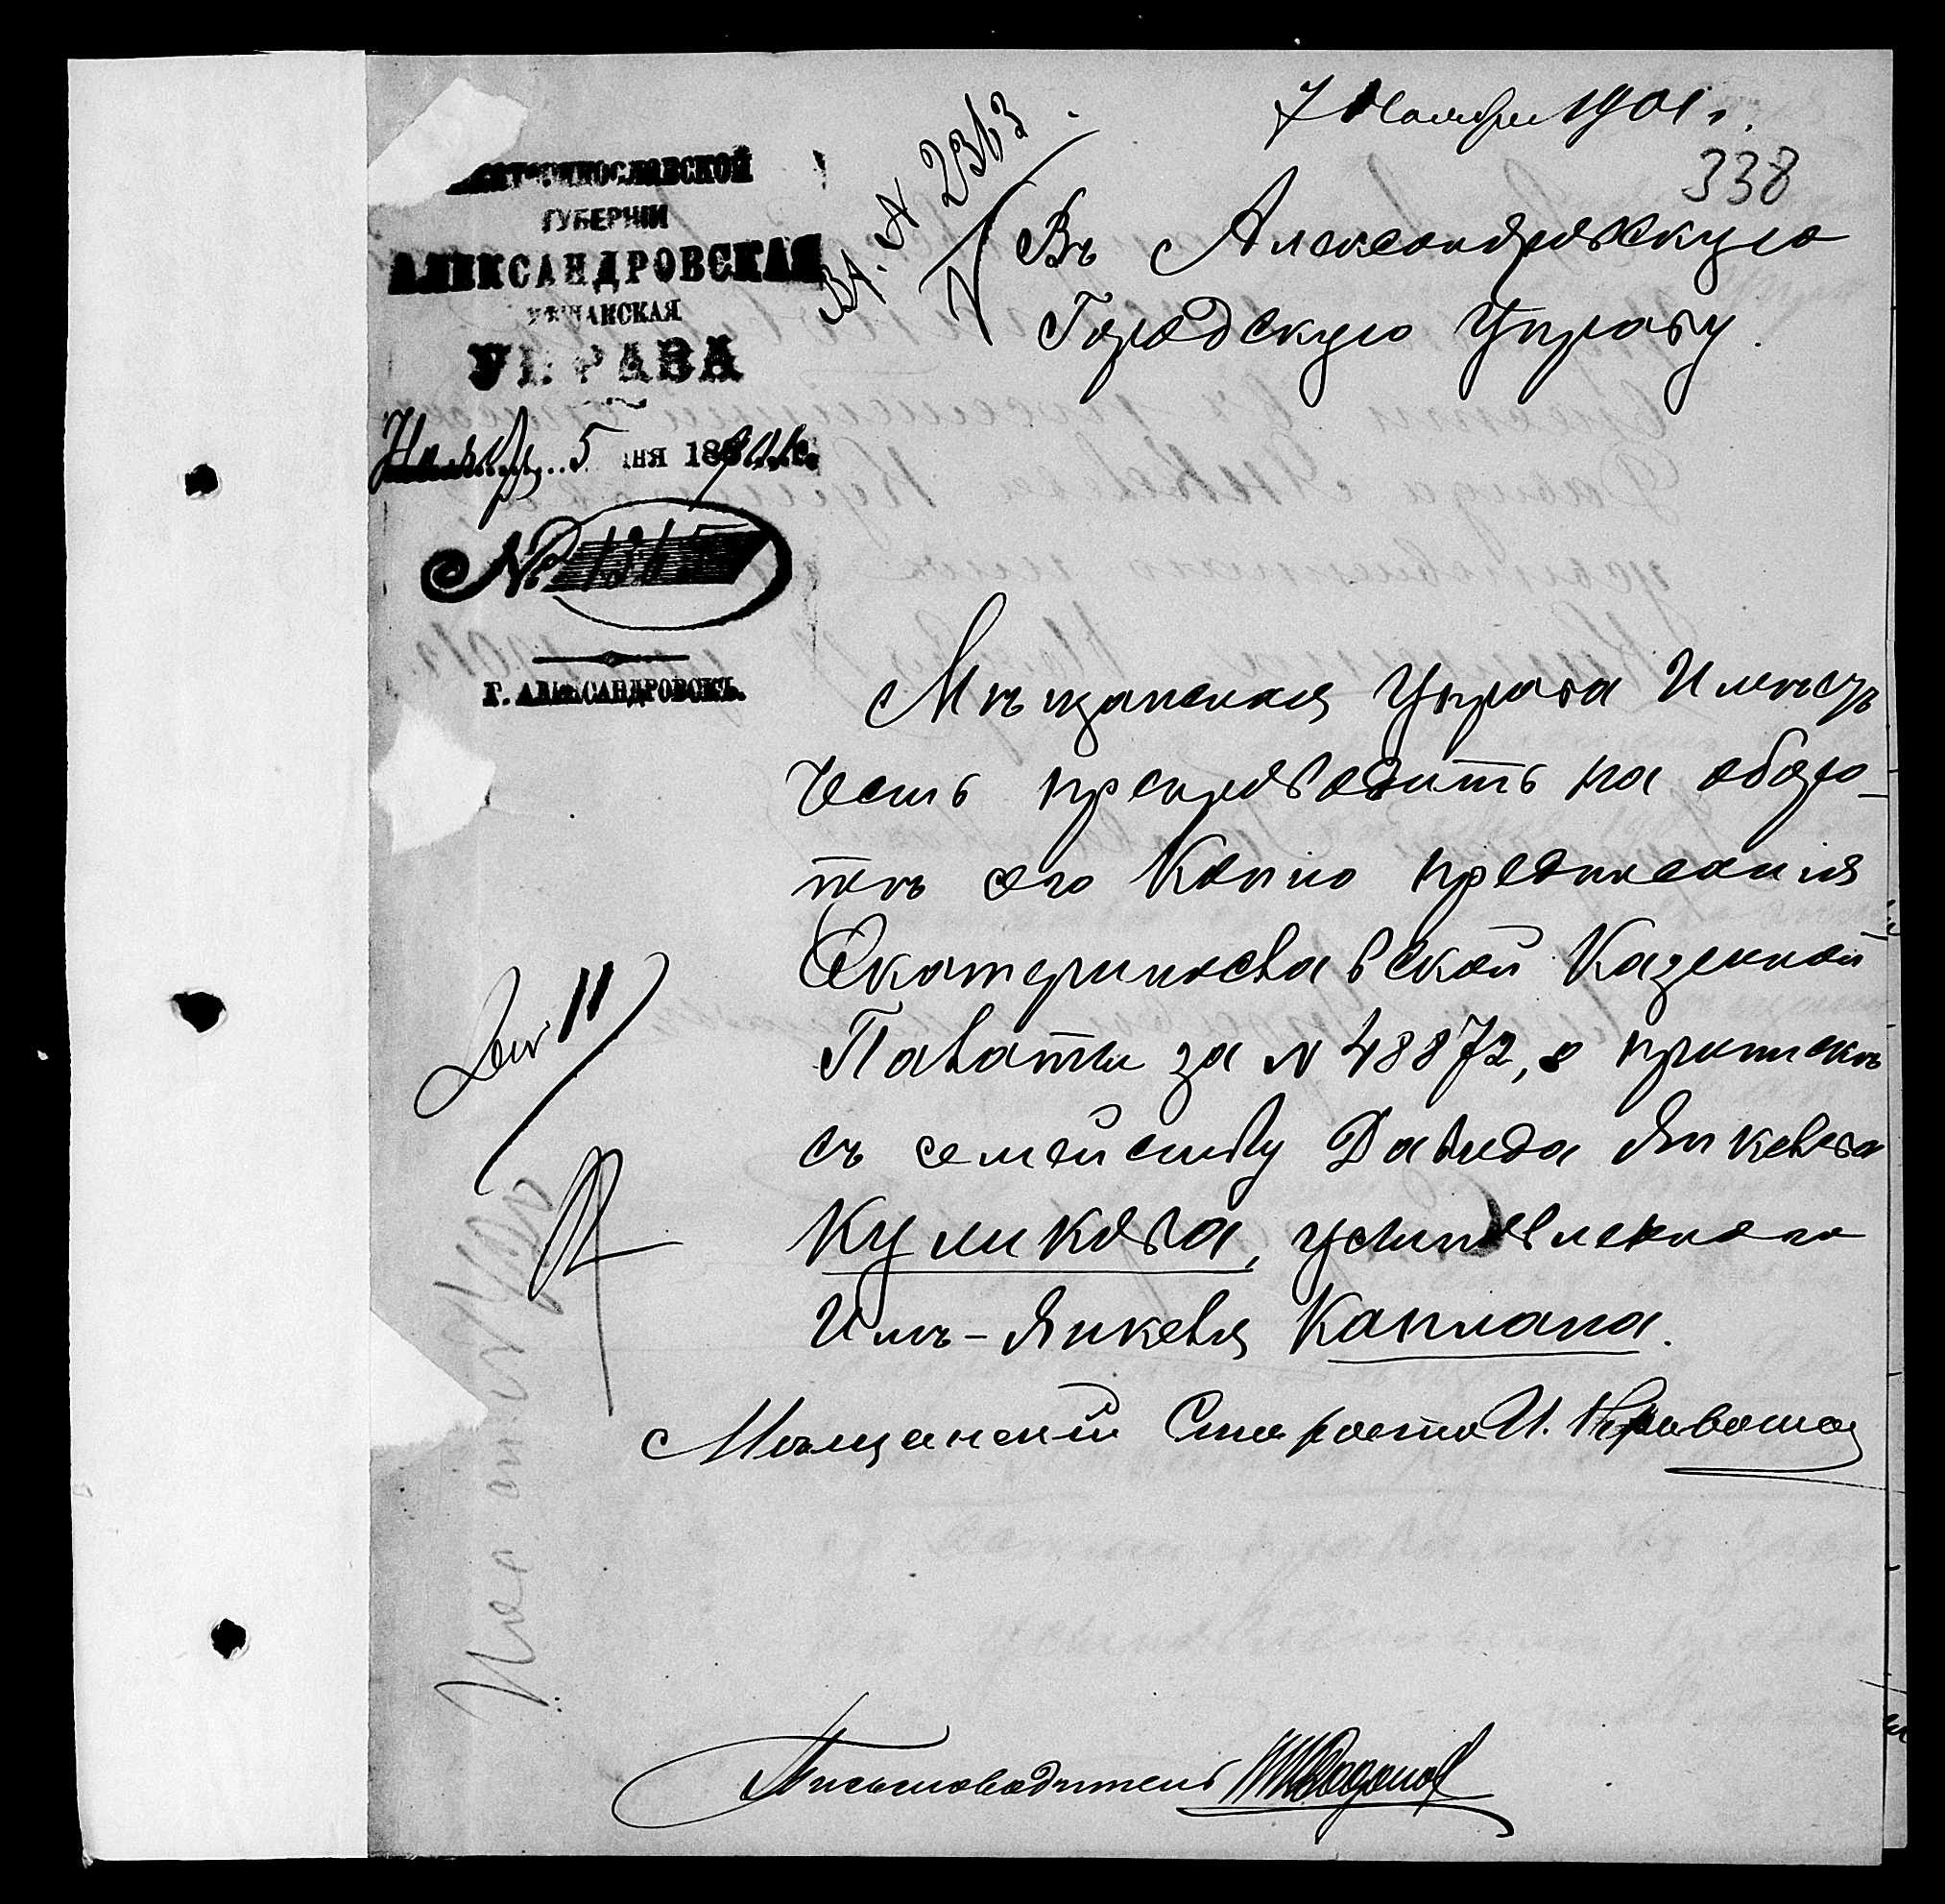 7 Ноября 1901 г.
338
Вх. № 2313
ЕКАТЕРИНОСЛАВСКОЙ
ГУБЕРНІИ
АЛЕКСАНДРОВСКАЯ
МѢЩАНСКАЯ
УПРАВА
Ноябр. 5 дня 1901 г.
№ 1315
Г. АЛЕКСАНДРОВСКЪ.
Въ Александровскую
Городскую Управу.
Мѣщанская Управа Имѣетъ
честь препроводить на оборо-
тѣ сего копію предписанія
Екатеринославской Казенной
Палаты за № 48872, о припискѣ
съ семейству Давида Янкелева
Куликова, усыновленного
Имъ-Янкеля Каплана.
Мѣщанскій Староста И.
Письмоводитель